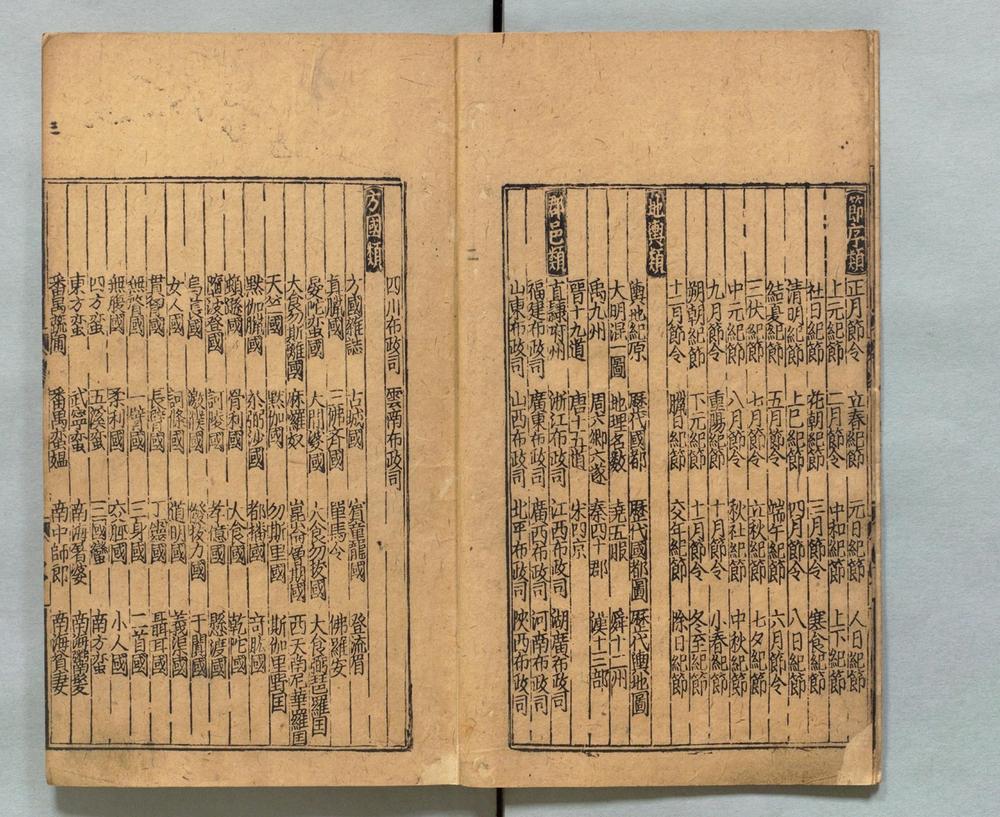 節序類 正月節令 立春紀節 元日紀節 人日紀節
上元紀節 二月節令 中和紀節 上下紀節
社日紀節 花朝紀節 三月節令 寒食紀節
清明紀節 上巳紀節 四月節令 八日紀節
結夏紀節 五月節令 端午紀節 六月節令
三伏紀節 七月節令 立秋紀節 七夕紀節
中元紀節 八月節令 秋社紀節 中秋紀節
九月節令 重陽紀節 十月節令 小春紀節
朔朝紀節 下元紀節 十一月節令 冬至紀節
十二月節令 臘日紀節 交年紀節 除日紀節
地輿類
輿地紀原 歷代國都 歷代國都圖 歷代輿地圖
大明混一圖 地理名數 堯五服 舜十二州
禹九州 周六鄉六遂 秦四十郡 漢十三部
晉十九道 唐十五道 宋四京
郡邑類
直隸府州 浙江布政司 江西布政司 湖廣布政司
福建布政司 廣東布政司 廣西布政司 河南布政司
山東布政司 山西布政司 北平布政司 陝西布政司
二
四川布政司 雲南布政司
方國類
方國雜誌 占城國 賓童龍國 登流眉
真臘國 三佛齊國 單馬令 佛羅安
晏陀蛮國 大闍婆國 大食勿拔國 大食弼琶羅国
大食勿斯離國 麻羅奴 崑崙層期國 西天南尼華羅国
天竺國 默伽國 勿斯里國 斯伽里野国
默伽臘國 於弥沙國 都播國
國 骨利國 大食國 乾陀國
墮波登國 訶陵國 孝億國 懸渡國
烏萇國 國 撥拔力國 于闐國
女人國 訶條國 道明國 義渠國
貫智國 長臂國 丁靈國 聶耳國
無臂國 一臂國 三身國 二首國
無腹國 柔利國 交脛國 小人國
四方蛮 五溪蛮 三國蠻 南方蛮
東方蛮 武寧蛮 南海 婆 南海 髮
番禺 圃 番禺蛮媪 南中師郎 南海貧妻
三